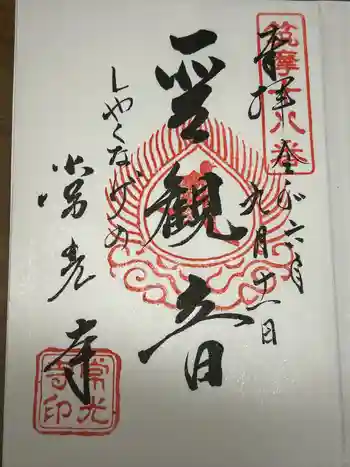 奉拝 令和六年
九月十一日
聖観音
しやくなげの
常光寺
常光寺印